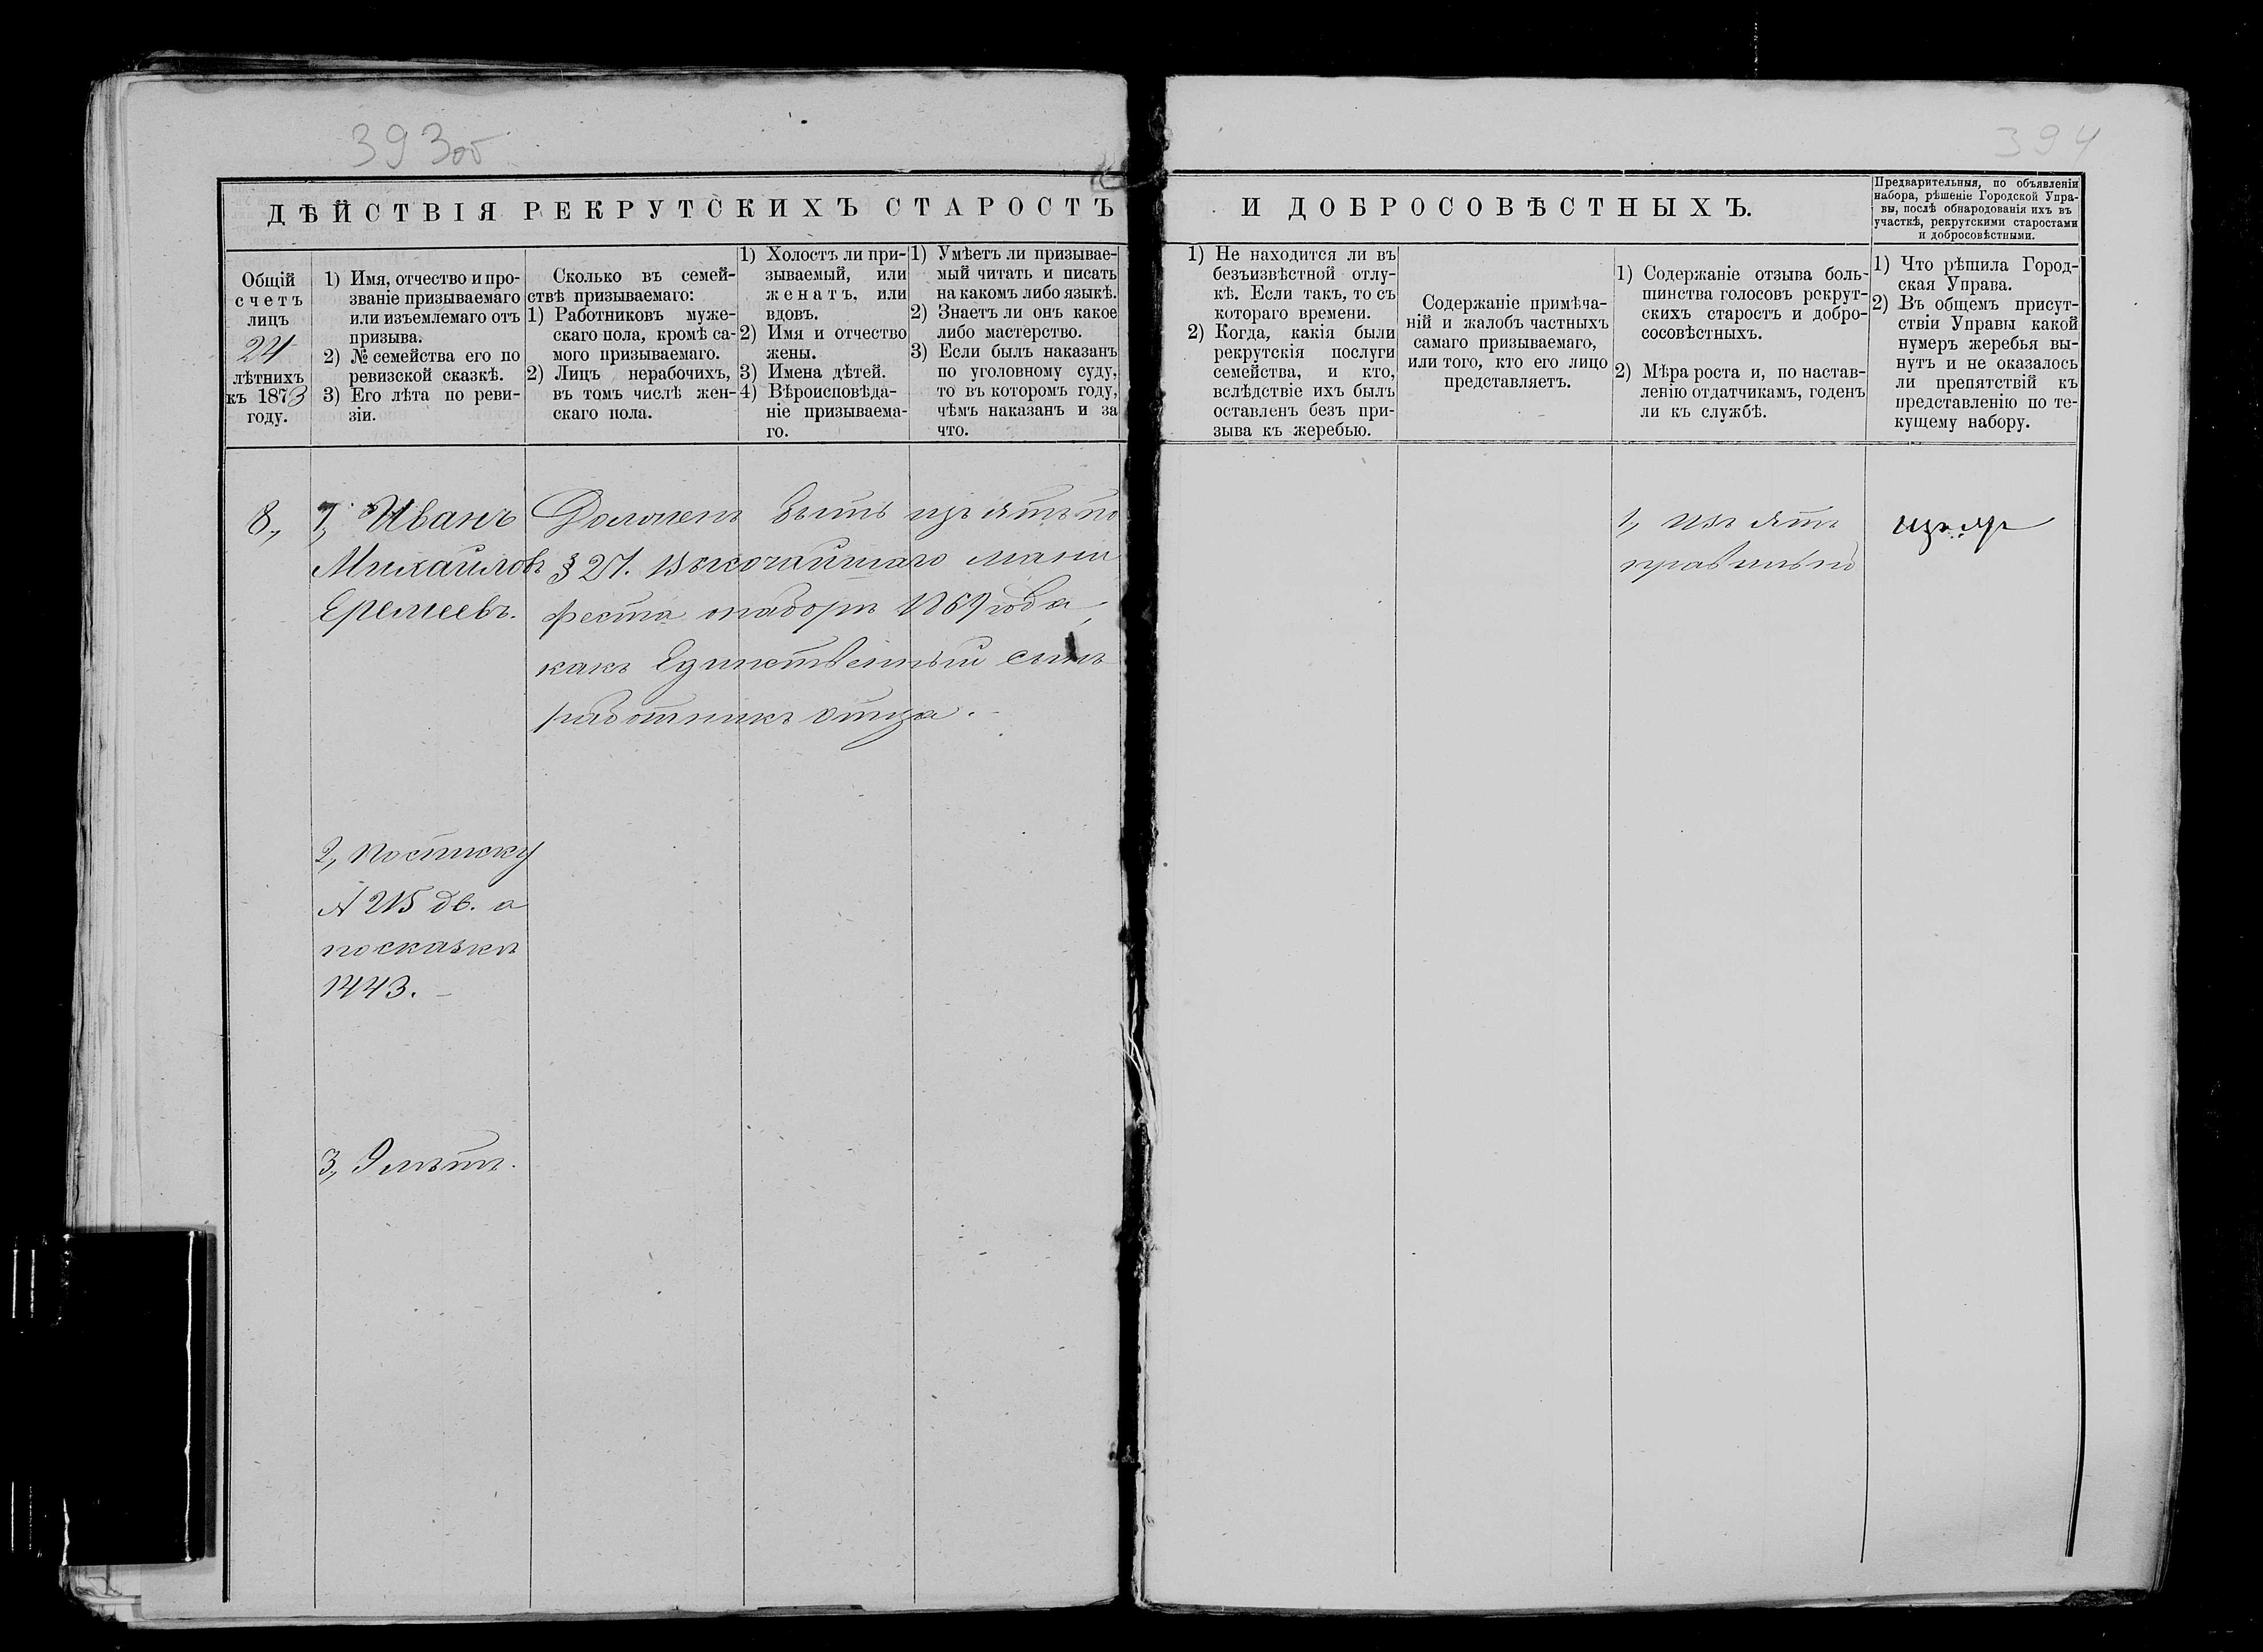 393об
394
ДѢЙСТВІЯ РЕКРУТСКИХЪ СТАРОСТЪ
И ДОБРОСОВѢСТНЫХЪ.
Предварительныя, по объявленіи
набора, рѣшеніе Городской Упра-
вы, послѣ обнародованія ихъ въ
участкѣ, рекрутскими старостами
и добросовѣстными.
Общій
счетъ
лицъ
24
лѣтнихъ
къ 1873
году.
1) Имя, отчество и про-
званіе призываемаго
или изъемлемаго отъ
призыва.
2) № семейства его по
ревизской сказкѣ.
3) Его лѣта по реви-
зіи.
Сколько въ семей-
ствѣ призываемаго:
1) Работниковъ муже-
скаго пола, кромѣ са-
мого призываемаго.
2) Лицъ нерабочихъ,
въ томъ числѣ жен-
скаго пола.
1) Холостъ ли при-
зываемый, или
женатъ, или
вдовъ.
2) Имя и отчество
жены.
3) Имена дѣтей.
4) Вѣроисповѣда-
ніе призываема-
го.
1) Умѣетъ ли призывае-
мый читать и писать
на какомъ либо языкѣ.
2) Знаетъ ли онъ какое
либо мастерство.
3) Если былъ наказанъ
по уголовному суду,
то въ которомъ году,
чѣмъ наказанъ и за
что.
1) Не находится ли въ
безъизвѣстной отлу-
кѣ. Если такъ, то съ
котораго времени.
2) Когда, какія были
рекрутскія послуги
семейства, и кто,
вслѣдствіе ихъ былъ
оставленъ безъ при-
зыва къ жеребью.
Содержаніе примѣча-
ній и жалобъ частныхъ
самаго призываемаго,
или того, кто его лицо
представляетъ.
1) Содержаніе отзыва боль-
шинства голосовъ рекрут-
скихъ старостъ и добро-
сосовѣстныхъ.
2) Мѣра роста и, по настав-
ленію отдатчикамъ, годенъ
ли къ службѣ.
1) Что рѣшила Город-
ская Управа.
2) Въ общемъ присут-
ствіи Управы какой
нумеръ жеребья вы-
нутъ и не оказалось
ли препятствій къ
представленію по те-
кущему набору.
8., 1, Иванъ
Михайловъ
Еремеевъ.
Долженъ быть изъятъ по
§ 27. Высочайшаго мани
феста о наборѣ 1869 года,
какъ Единственный сынъ
работникъ отца.
2, по списку
№ 215 дв. а
по сказкѣ
1443.
3, 9 лѣтъ.
1, изъятъ
правильно